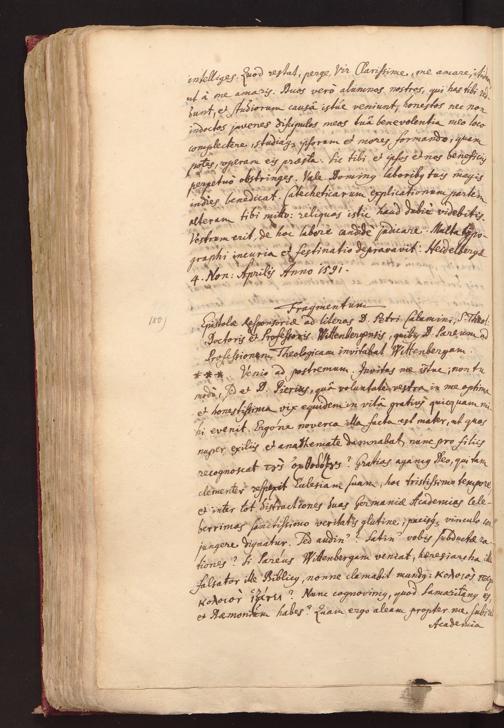 intelliges. Quod restat, perge, Vir Clarissime, me amare,
ut à me amaris. Duos verò alumnos nostros, qui has tibi
bunt, et studiorum causâ istuc veniunt, honestos nec non
indoctos juvenes discipulos meos tuâ benevolentia meo loco
complectere, studiaq; ipsorum et mores formando, quam
potes, operam eis præsta. Sic tibi et ipsos et nos beneficijs
perpetuò obstringes. Vale. Dominus laboribus tuis magis
indies benedicat. Catecheticarum explicationum partem
alteram tibi mitto: reliquas istic haud dubiè videbitis.
Vestrum erit, de hoc labore candidè judicare. Multa typo-
graphi incuria et festinatio depravavit. Heidelbergæ
4. Non: Aprilis Anno 1591.
Fragmentum
Epistolæ Responsoriæ ad literas D. Petri Calamini, S. Theol.
Doctoris et Professoris Wittenbergensis, quibus D. Pareum ad
Professionem Theologicam invitabat Wittenbergam.
*** Venio ad postremum. Invitas me istuc, non tu
modò, sed et D. Pierius, quâ voluntate vestra in me optima
et honestissima vix equidem in vitâ gratius quicquam mi
hi evenit. Ergone noverca illa facta est mater, ut quos
nuper exiliis et anathemate damnabat, nunc pro filiis
recognoscat τοὺς ὀρθοδόξους? Gratias agamus Deo, qui tam
clementer respexit Ecclesiam suam, hoc tristissimo tempore
et inter tot distractiones duas Germaniæ Academias cele-
berrimas sanctissimo veritatis glutine, pacisq; vinculo con
jungere dignatur. Sed audin'? Satin' vobis subductæ ra
tiones? Si Pareus Wittenbergam veniat, heresiarcha
falsator ille Biblicus, nonne clamabit mundus: κολοιὸς ποτὶ
κολοιὸν ἱζάνει? Nunc cognovimus, quod Samaritanus es,
et Dæmonium habes? Quam ergo aleam propter me subi
Academia